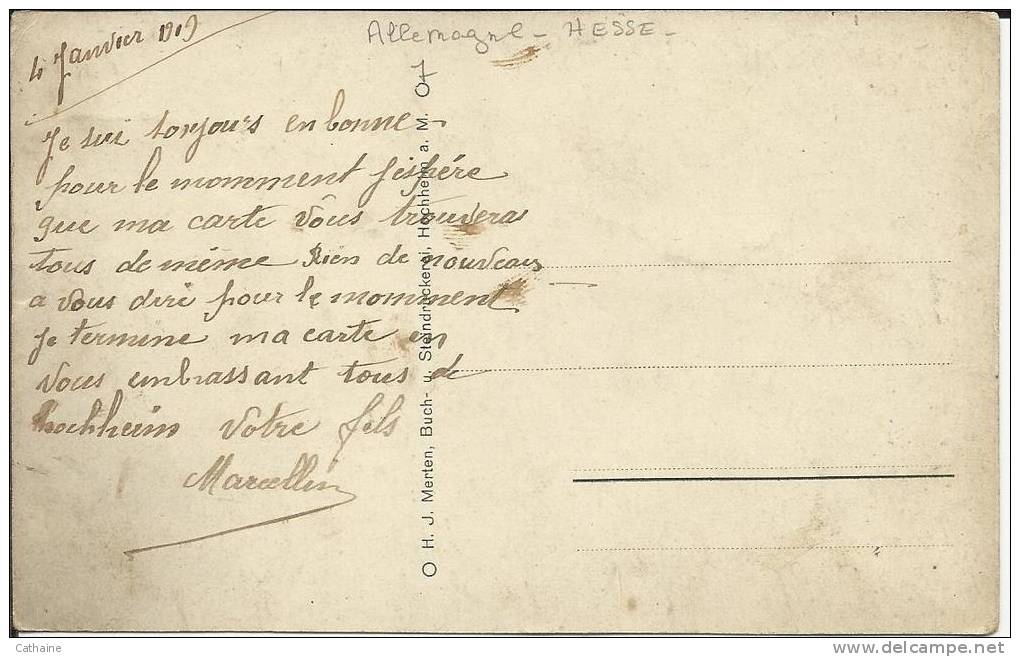 Allemagne - HESSE -
4 Janvier 1919
Je sui toujours en bonne
pour le momment j'espére
que ma carte vous trouveras
tous de même Rien de nouveau
a vous dire pour le momment
Je termine ma carte en
vous embrassant tous de
hochheim votre fils
Marcellin
H. J. Merten, Buch- u. Steindruckerei, Hochheim a. M.
Cathaine
www.delcampe.net